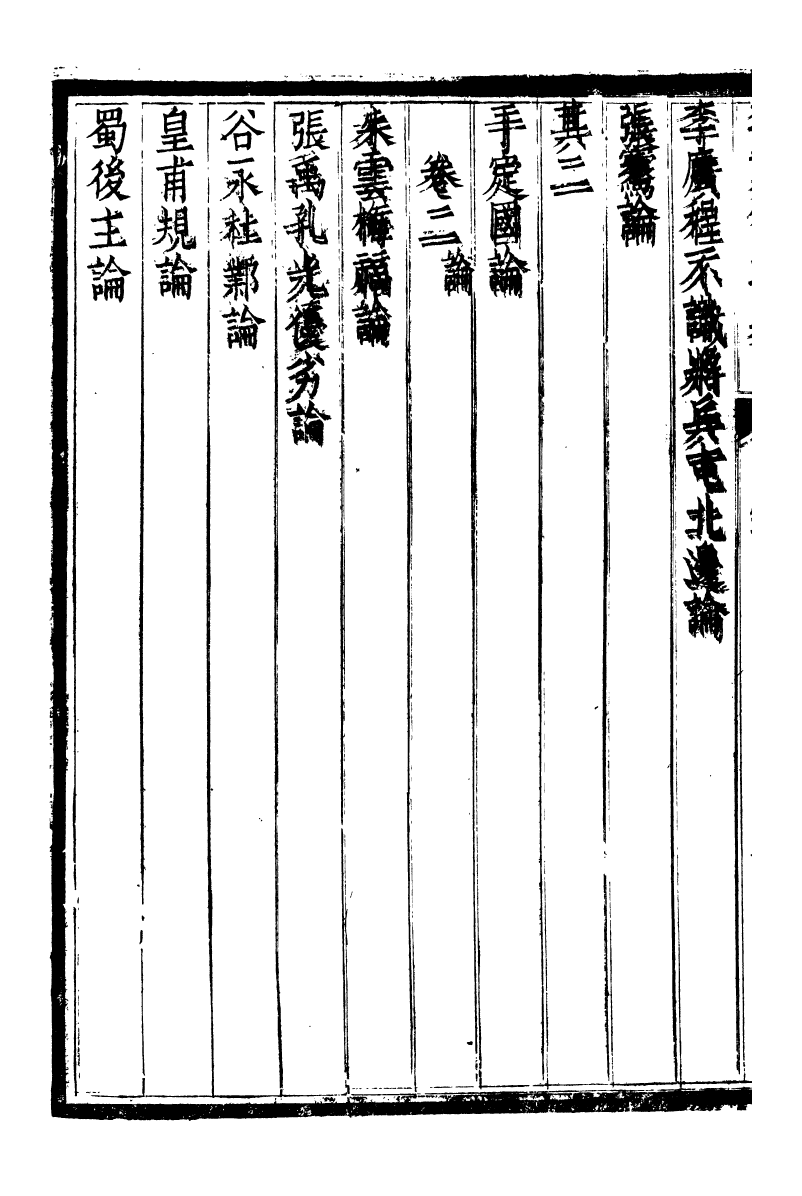 李廣程不識將兵屯北邊論
張騫論
其二
于定國論
卷二 論
朱雲梅福論
張禹孔光優劣論
谷永杜鄴論
皇甫規論
蜀後主論